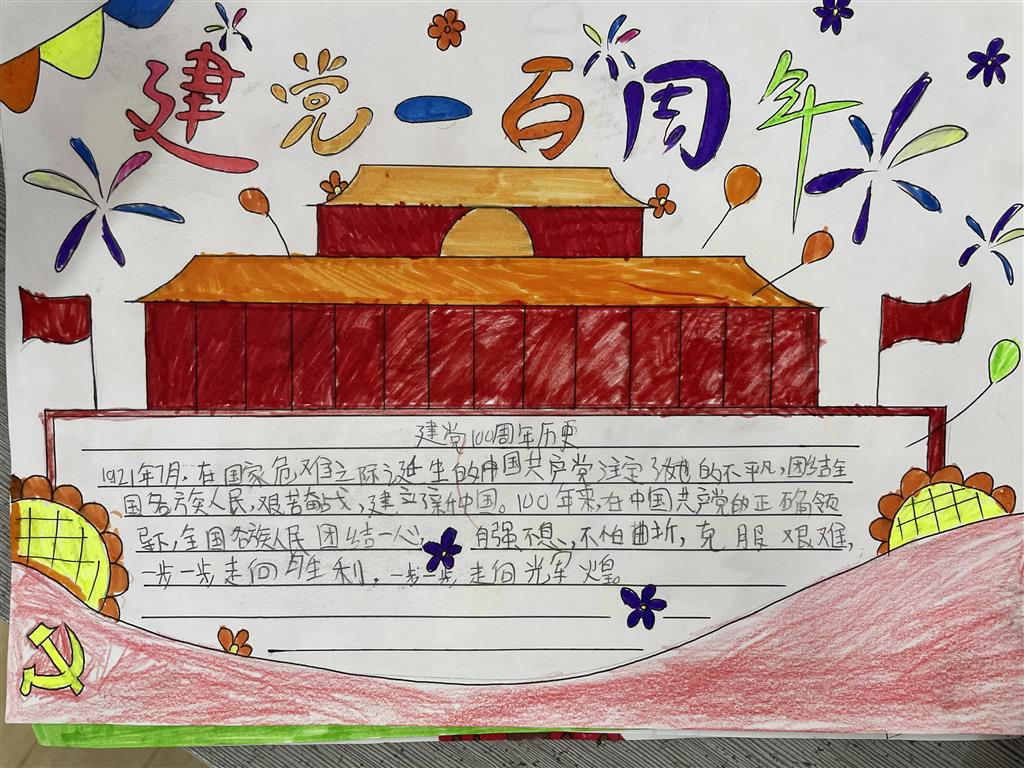 建党一百周年
建党100周年历史
1921年7月,在国家危难之际诞生的中国共产党注定了她的不平凡,团结全
国各族人民,艰苦奋战,建立新中国。100年来,在中国共产党的正确领
导下,全国各族人民团结一心,自强不息,不怕曲折,克服艰难,
一步一步走向胜利,一步一步走向光辉煌。